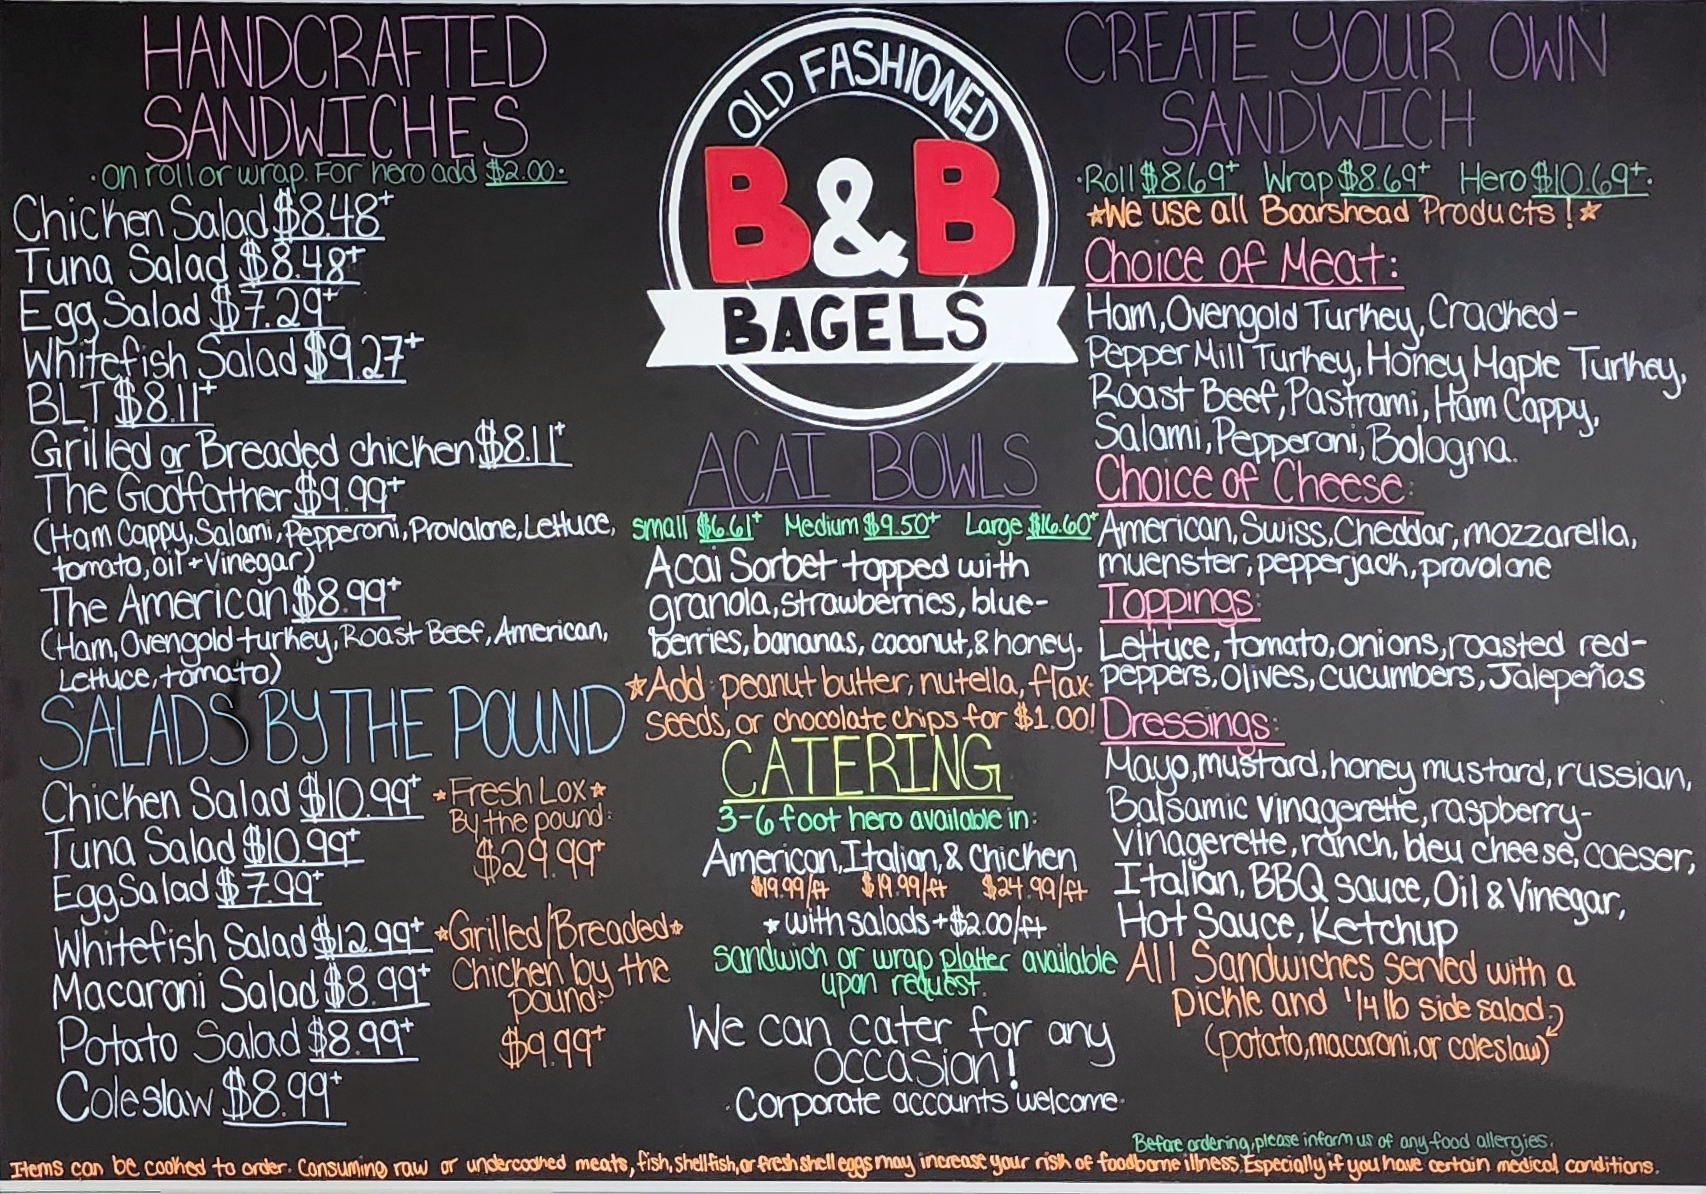 HANDCRAFTED
SANDWICHES
·on roll or wrap. For hero add $2.00·
Chicken Salad $8.48+
Tuna Salad $8.48+
Egg Salad $7.29+
Whitefish Salad $9.27+
BLT $8.11+
Grilled or Breaded chicken $8.11+
The Godfather $9.99+
(Ham Cappy, Salami, Pepperoni, Provalone, Lettuce,
tomato, oil + Vinegar)
The American $8.99+
(Ham, Ovengold turkey, Roast Beef, American,
Lettuce, tomato)
SALADS BY THE POUND
Chicken Salad $10.99+
Tuna Salad $10.99+
Egg Salad $7.99+
Whitefish Salad $12.99+
Macaroni Salad $8.99+
Potato Salad $8.99+
Coleslaw $8.99+
★Fresh Lox★
By the pound:
$29.99+
★Grilled/Breaded★
Chicken by the
pound:
$9.99+
OLD FASHIONED
B&B
BAGELS
ACAI BOWLS
small $6.61+ Medium $9.50+ Large $16.60+
Acai Sorbet topped with
granola, strawberries, blue-
berries, bananas, coconut, & honey.
★Add peanut butter, nutella, flax
seeds, or chocolate chips for $1.00!
CATERING
3-6 foot hero available in:
American, Italian, & Chicken
$19.99/ft $19.99/ft $24.99/ft
★with salads +$2.00/ft
sandwich or wrap platter available
upon request.
We can cater for any
occasion!
·Corporate accounts welcome·
CREATE YOUR OWN
SANDWICH
·Roll $8.69+ Wrap $8.69+ Hero $10.69+·
★We use all Boarshead Products!★
Choice of Meat:
Ham, Ovengold Turkey, Cracked-
Pepper Mill Turkey, Honey Maple Turkey,
Roast Beef, Pastrami, Ham Cappy,
Salami, Pepperoni, Bologna.
Choice of Cheese:
American, Swiss, Cheddar, mozzarella,
muenster, pepperjack, provolone
Toppings:
Lettuce, tomato, onions, roasted red-
peppers, Olives, cucumbers, Jalepeños
Dressings:
Mayo, mustard, honey mustard, russian,
Balsamic Vinagerette, raspberry-
Vinagerette, ranch, bleu cheese, caeser,
Italian, BBQ sauce, Oil & Vinegar,
Hot Sauce, Ketchup
All Sandwiches served with a
pickle and 1/4 lb side salad
(potato, macaroni, or coleslaw)
Before ordering, please inform us of any food allergies.
Items can be cooked to order. Consuming raw or undercooked meats, fish, shellfish, or fresh shell eggs may increase your risk of foodborne illness. Especially if you have certain medical conditions.